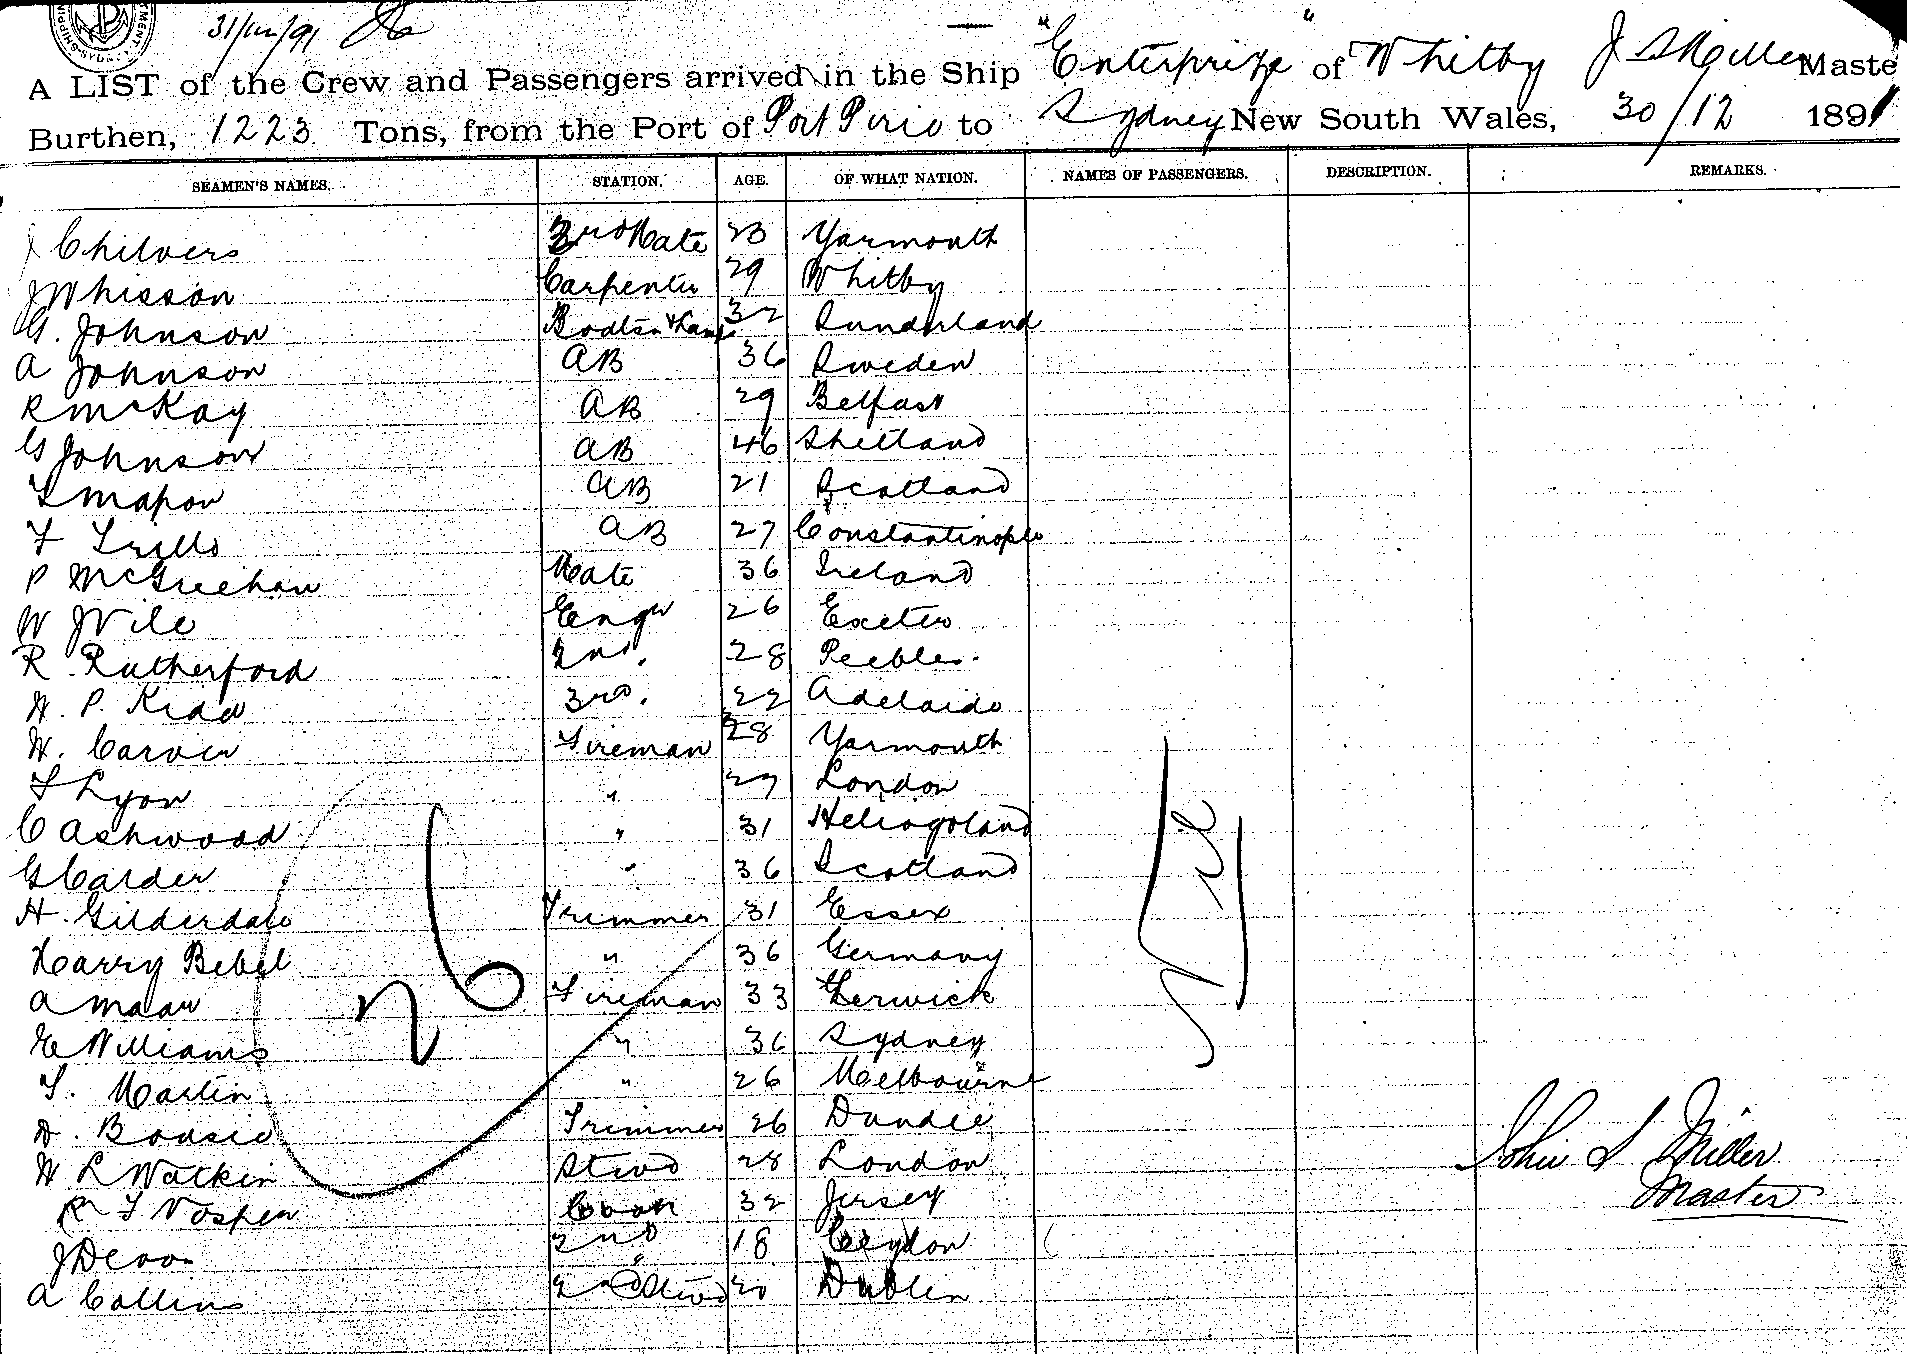 31/12/91
A LIST of the Crew and Passengers arrived in the Ship "Enterprize" of Whitby J S Miller Maste
Burthen, 1223 Tons, from the Port of Port Pirie to Sydney New South Wales, 30/12 1891
SEAMEN'S NAMES. STATION. AGE. OF WHAT NATION. NAMES OF PASSENGERS. DESCRIPTION. REMARKS.
J Chilvers 2nd Mate 23 Yarmouth
J Whisson Carpenter 29 Whitby
G. Johnson Boatsn & Lamps 32 Sunderland
A Johnson AB 36 Sweden
R McKay AB 29 Belfast
G Johnson AB 46 Shetland
AB 21 Scotland
F Trillo AB 27 Constantinople
P McGreehan Mate 36 Ireland
W J Vile Engr 26 Exeter
R. Rutherford 2nd. 28 Peebles.
W. P. Kidd 3rd. 22 Adelaide
W. Carver Fireman 28 Yarmouth
F Lyon " 27 London
C Ashwood " 31 Heliogoland
G Carder " 36 Scotland
H. Gilderdale Trimmer 31 Essex
Harry Bebel " 36 Germany
A Maaw Fireman 33 Lerwick
E Williams " 36 Sydney
T. Martin " 26 Melbourne
D. Bousie Trimmer 26 Dundee
W L Watkin Stwd 28 London
R T Vosper Cook 32 Jersey
J Deoon 2nd " 18 Croydon
A Collins 2nd Stwd 20 Dublin
26
Nil
John S Miller
Master